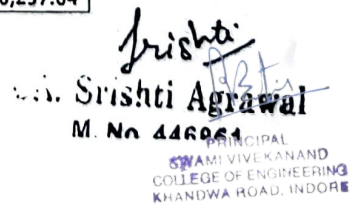 Srishti
CA. Srishti Agrawal
M. No 446961
PRINCIPAL
SWAMI VIVEKANAND
COLLEGE OF ENGINEERING
KHANDWA ROAD, INDORE